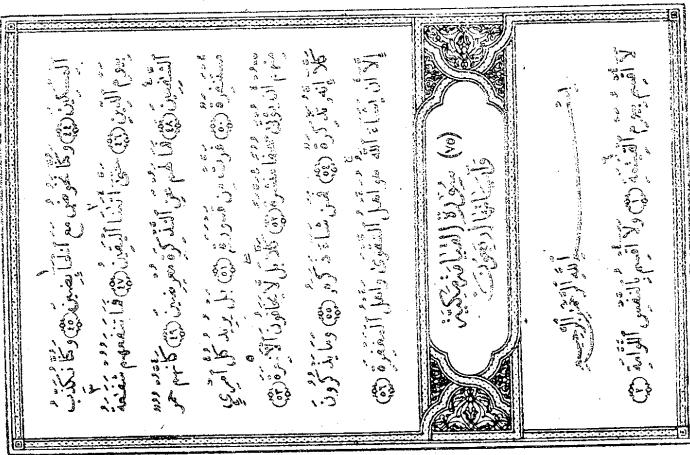 ٱلْمِسْكِينَ ﴿٤٤﴾ وَكُنَّا نَخُوضُ مَعَ ٱلْخَآئِضِينَ ﴿٤٥﴾ وَكُنَّا نُكَذِّبُ
بِيَوْمِ ٱلدِّينِ ﴿٤٦﴾ حَتَّىٰٓ أَتَىٰنَا ٱلْيَقِينُ ﴿٤٧﴾ فَمَا تَنفَعُهُمْ شَفَٰعَةُ
ٱلشَّٰفِعِينَ ﴿٤٨﴾ فَمَا لَهُمْ عَنِ ٱلتَّذْكِرَةِ مُعْرِضِينَ ﴿٤٩﴾ كَأَنَّهُمْ حُمُرٌ
مُّسْتَنفِرَةٌ ﴿٥٠﴾ فَرَّتْ مِن قَسْوَرَةٍۭ ﴿٥١﴾ بَلْ يُرِيدُ كُلُّ ٱمْرِئٍ
مِّنْهُمْ أَن يُؤْتَىٰ صُحُفًا مُّنَشَّرَةً ﴿٥٢﴾ كَلَّا بَل لَّا يَخَافُونَ ٱلْءَاخِرَةَ ﴿٥٣﴾
كَلَّآ إِنَّهُۥ تَذْكِرَةٌ ﴿٥٤﴾ فَمَن شَآءَ ذَكَرَهُۥ ﴿٥٥﴾ وَمَا يَذْكُرُونَ
إِلَّآ أَن يَشَآءَ ٱللَّهُ هُوَ أَهْلُ ٱلتَّقْوَىٰ وَأَهْلُ ٱلْمَغْفِرَةِ ﴿٥٦﴾
(٧٥) سورة القيامة مكية
وآياتها أربعون
بِسْمِ ٱللَّهِ ٱلرَّحْمَٰنِ ٱلرَّحِيمِ
لَآ أُقْسِمُ بِيَوْمِ ٱلْقِيَٰمَةِ ﴿١﴾ وَلَآ أُقْسِمُ بِٱلنَّفْسِ ٱللَّوَّامَةِ ﴿٢﴾